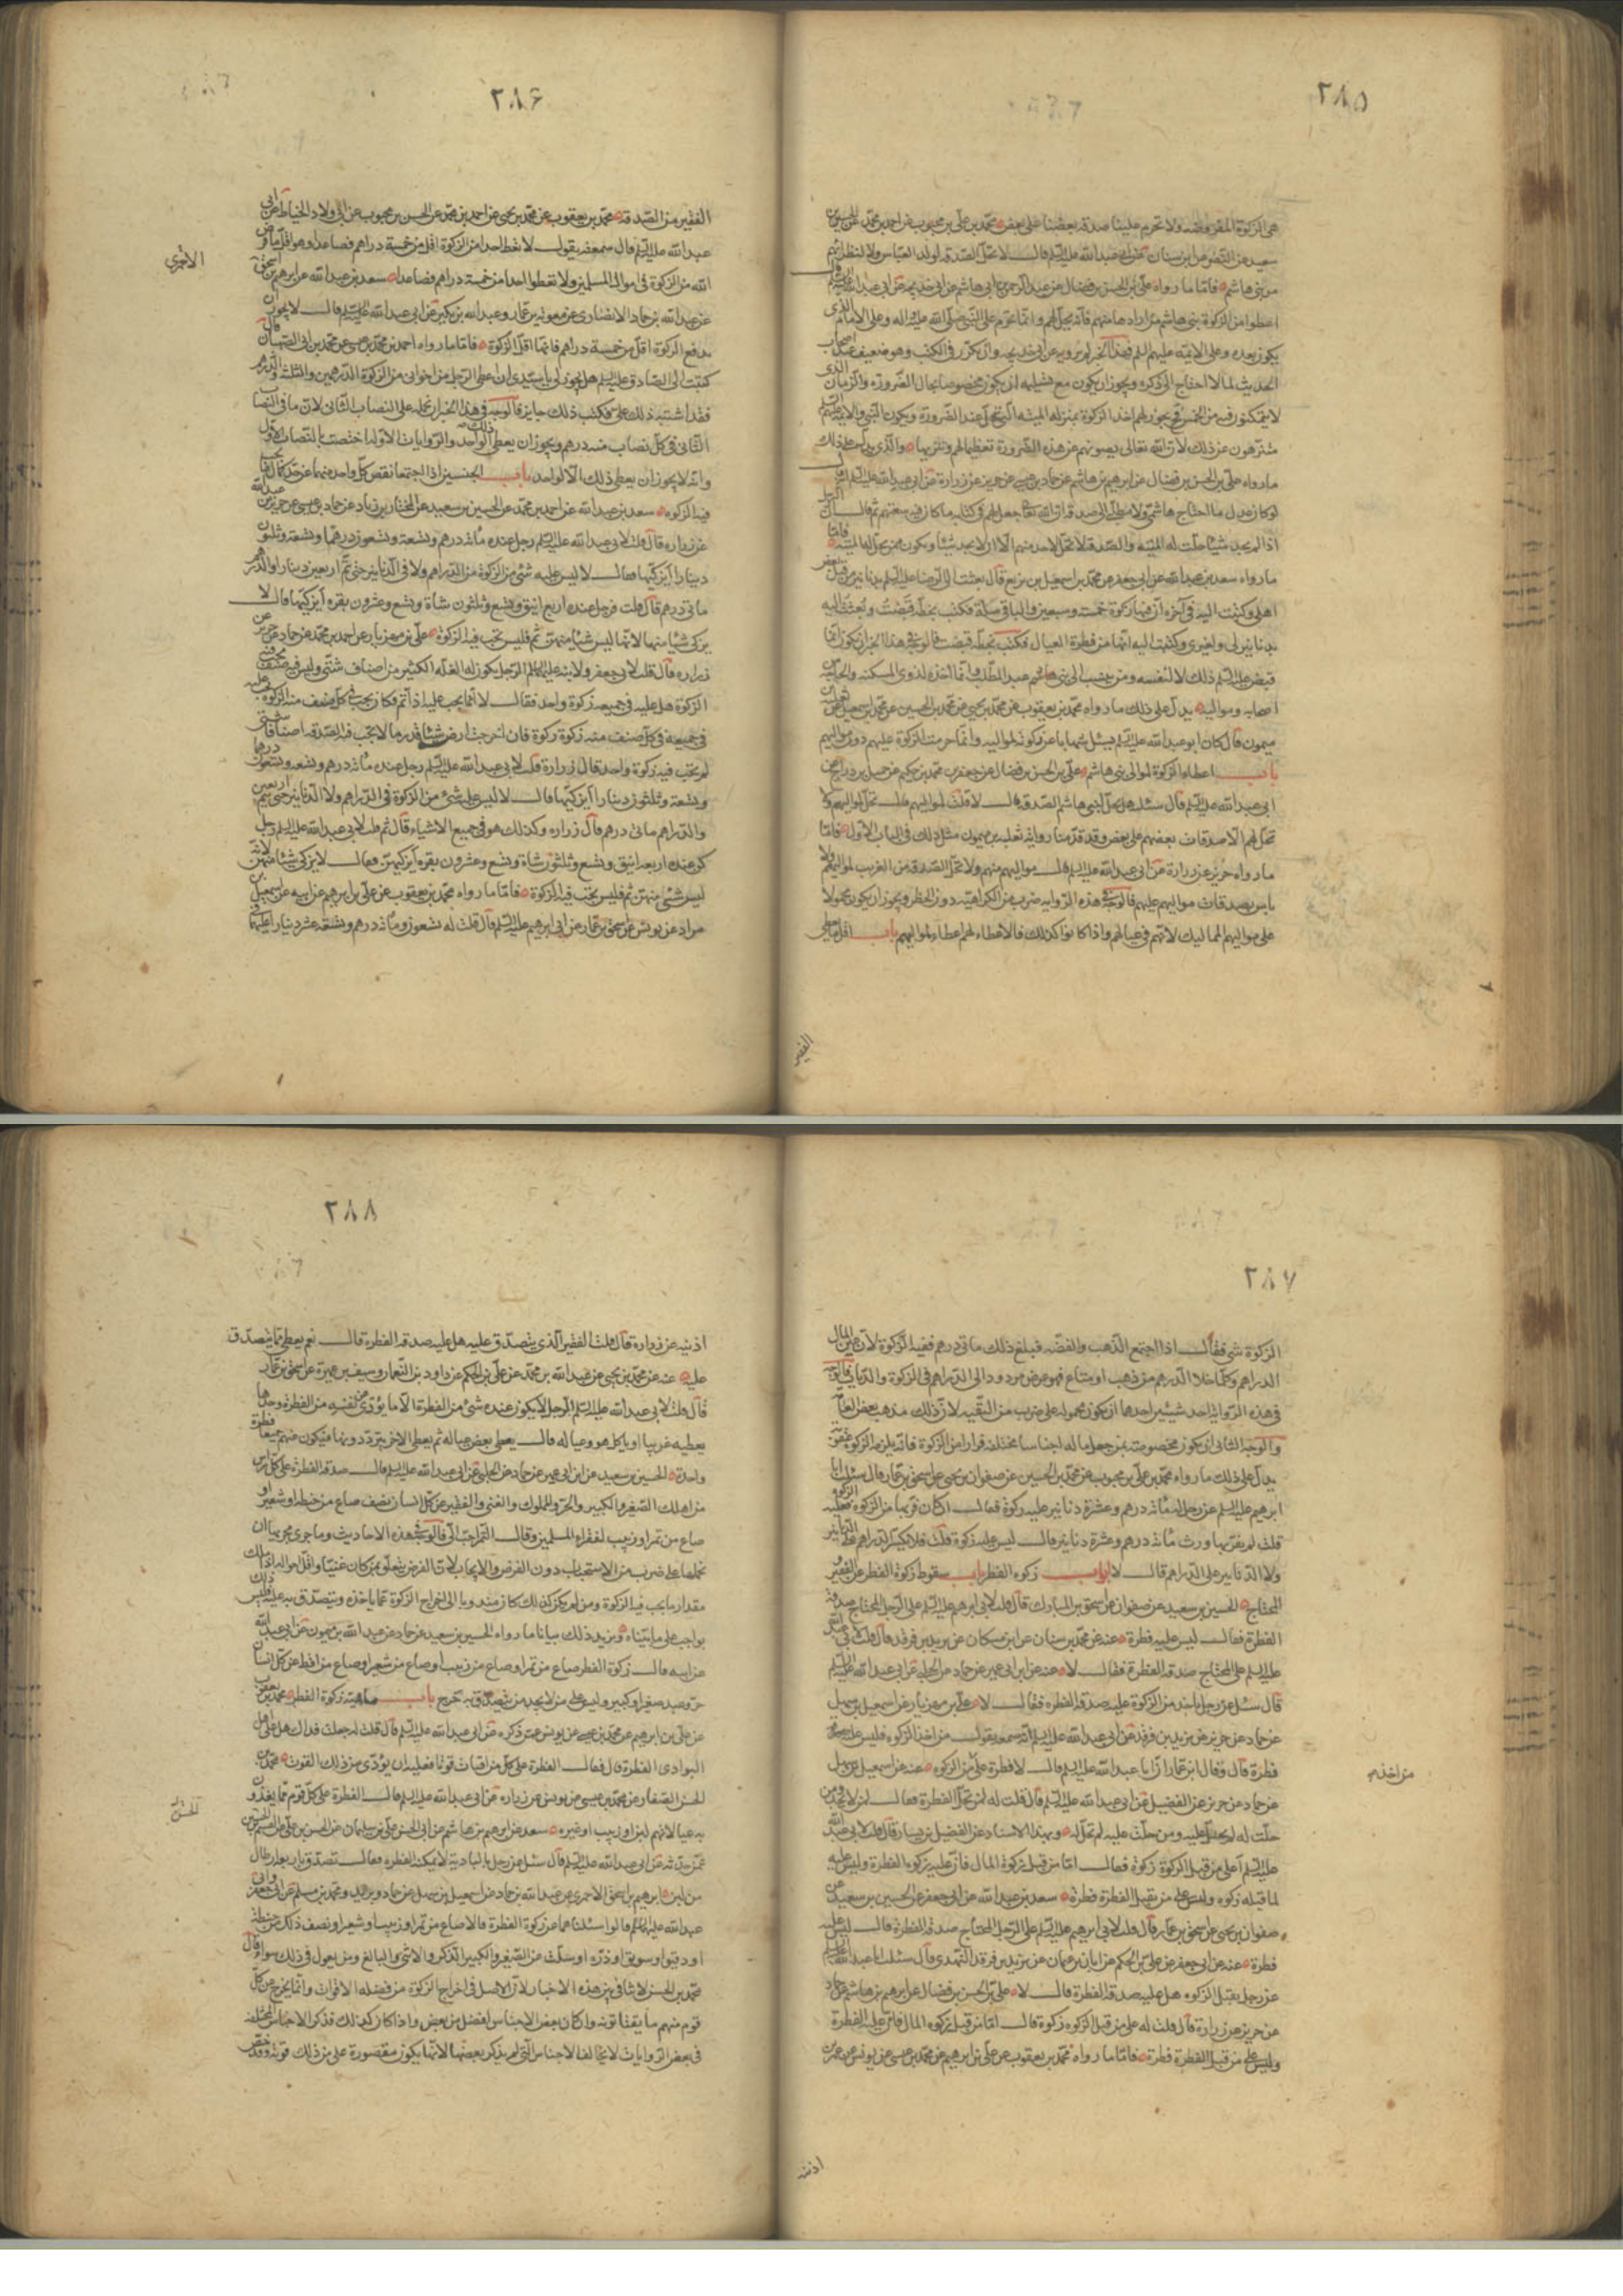 ٢٨٥
هى الزكوة المفروضه ولا تحرم علينا صدقة بعضنا على بعض محمد بن على بن محبوب عن احمد بن محمد عن الحسين بن
سعيد عن النضر عن ابن سنان عن ابى عبد الله عليه السلام قال لا تحل الصدقه لولد العباس ولا لنظرائهم
من بنى هاشم فاما ما رواه على بن الحسن بن فضال عن عبد الرحمن بن ابى هاشم عن ابى خديجه عن ابى عبد الله عليه السلم قال
اعطوا من الزكوة بنى هاشم من ارادها منهم فانه يحل لهم وانما تحرم على النبى صلى الله عليه واله وعلى الامام الذى
يكون بعده وعلى الائمه عليهم السلم فهذا الخبر لم يروه غير ابى خديجه وان تكرر فى الكتب وهو ضعيف عند اصحاب
الحديث لما لا احتاج الى ذكره ويجوز ان يكون مع تسليمه ان يكون مخصوصا بحال الضرورة والزمان الذى
لا يتمكنون فيه من الخمس فح يجوز لهم اخذ الزكوة بمنزلة الميته التى تحل عند الضرورة ويكون النبى والائمه عليهم السلم
منزهون عن ذلك لان الله تعالى يصونهم عن هذه الضرورة تعظيما لهم وتنزيها والذى يدل على ذلك
ما رواه على بن الحسن بن فضال عن ابرهيم بن هاشم عن حماد بن عيسى عن حريز عن زرارة عن ابى عبد الله عليه السلم قال
لو كان عدل ما احتاج هاشمى ولا مطلبى الى صدقة ان الله تعالى جعل لهم فى كتابه ما كان فيه سعتهم ثم قال ان الرجل
اذا لم يجد شيئا حلت له الميته والصدقة لا تحل لاحد منهم الا ان لا يجد شيئا ويكون ممن يحل له الميته فاما
ما رواه سعد بن عبد الله عن ابى جعفر عن محمد بن اسمعيل بن بزيع قال بعثت الى الرضا عليه السلم بدنانير من قبل بعض
اهلى وكتبت اليه فى آخره ان فيها زكوة خمسة وسبعين والباقى صلة فكتب بخطه قبضت وبعثت اليه
بدنانير لى ولغيرى وكتبت اليه انها من فطرة العيال فكتب بخطه قبضت فالوجه فى هذا الخبر ان يكون انما
قبض عليه السلم ذلك لا لنفسه ومن ينسب الى بنى هاشم عبد المطلب وانما اخذه لذوى المسكنه والحاجة من
اصحابه ومواليه يدل على ذلك ما رواه محمد بن يعقوب عن محمد بن يحيى عن محمد بن الحسين عن محمد بن اسمعيل عن ثعلبة بن
ميمون قال كان ابو عبد الله عليه السلم يسئل شهابا من زكوته لمواليه وانما حرمت الزكوة عليهم دون مواليهم
باب اعطاء الزكوة لموالى بنى هاشم على بن الحسن بن فضال عن جعفر بن محمد بن حكيم عن جميل بن دراج عن
ابى عبد الله عليه السلم قال سئل هل تحل لبنى هاشم الصدقه قال لا قلت لمواليهم قال تحل لمواليهم ولا
تحل لهم الا صدقات بعضهم على بعض وقد قدمنا رواية ثعلبه بن ميمون مثل ذلك فى الباب الاول فاما
ما رواه حريز عن زرارة عن ابى عبد الله عليه السلم قال مواليهم منهم ولا تحل الصدقة من الغريب لمواليهم ولا
باس بصدقات مواليهم عليهم فالوجه فى هذه الروايه ضرب من الكراهيه دون الحظر ويجوز ان يكون محمولا
على مواليهم المماليك لانهم فى عيالهم واذا كانوا كذلك فالاعطاء لهم اعطاء لمواليهم باب اقل ما يعطى
الفقير
٢٨۶
الفقير من الصدقة محمد بن يعقوب عن محمد بن يحيى عن احمد بن محمد عن الحسن بن محبوب عن ابى ولاد الحناط عن ابى
عبد الله عليه السلم قال سمعته يقول لا تعط احدا من الزكوة اقل من خمسة دراهم فصاعدا وهو اقل ما فرض
الله من الزكوة فى اموال المسلمين ولا تعطوا احدا من خمسة دراهم فصاعدا سعد بن عبد الله عن ابرهيم بن اسحق
الاحمرى
عن عبد الله بن حماد الانصارى عن معوية بن عمار وعبد الله بن بكير عن ابى عبد الله عليه السلم قال قال لا يجوز ان
يدفع الزكوة اقل من خمسة دراهم فانها اقل الزكوة فاما ما رواه احمد بن محمد بن عيسى عن محمد بن ابى الصهبان قال
كتبت الى الصادق عليه السلم هل يجوز لى يا سيدى ان اعطى الرجل من اخوانى من الزكوة الدرهمين والثلثة والدرهم
فقد اشتبه ذلك على فكتب ذلك جايز فالوجه فى هذا الخبر ان نحمله على النصاب الثانى لان ما فى النصاب
الثانى فى كل نصاب منه درهم ويجوز ان يعطى ذلك الواحد والروايات الاوله اختصت بالنصاب الاول
وانه لا يجوز ان يعطى ذلك الا لواحد باب الجنسين اذا اجتمعا نقص كل واحد منهما عن حد كمال ما يجب
فيه الزكوه سعد بن عبد الله عن احمد بن محمد عن الحسين بن سعيد عن المختار بن زياد عن حماد بن عيسى عن حريز بن عبد الله
عن زراره قال قلت لابى عبد الله عليه السلم رجل عنده مائة درهم وتسعة وتسعون درهما وتسعة وثلثون
دينارا أيزكيها فقال لا ليس عليه شئ من الزكوة من الدراهم ولا فى الدنانير حتى يتم اربعين دينارا والدراهم
مأتى درهم قال قلت فرجل عنده اربع اينق وتسع وثلثون شاة وتسع وعشرون بقره أيزكيها قال لا
يزكى شيئا منها لانها ليس شيئا منهن تم فليس تجب فيه الزكوة على بن مهزيار عن احمد بن محمد عن حماد عن حريز عن
زراره قال قلت لابى جعفر ولابنه عليهما السلم الرجل يكون له الغله الكثيره من اصناف شتى وليس فيه صنف يجب فيه
الزكوة هل عليه فى جميعه زكوة واحد فقال لا انما يجب عليه اذا تم فكان يجب فى كل صنف منه الزكوة يجب عليه
فى جميعه فى كل صنف منه زكوة زكوة فان اخرجت ارضه شيئا قدر ما لا تجب فيه الصدقه اصنافا شتى
لم تجب فيه زكوة واحد قال زرارة قلت لابى عبد الله عليه السلم رجل عنده مائة درهم وتسعة وتسعون درهما
وتسعة وثلثون دينارا أيزكيها قال لا ليس عليه شئ من الزكوة فى الدراهم ولا الدنانير حتى يتم اربعين
والدراهم مائتى درهم قال زراره وكذلك هو فى جميع الاشياء قال ثم قلت لابى عبد الله عليه السلم رجل
كن عنده اربعه اينق وتسع وثلثون شاة وتسع وعشرون بقره أيزكيهن فقال لا يزكى شيئا منهن لانه
ليس شئ منهن تم فليس تجب فيه الزكوة فاما ما رواه محمد بن يعقوب عن على بن ابرهيم عن ابيه عن اسمعيل بن
مرار عن يونس عن اسحق بن عمار عن ابى ابرهيم عليه السلم قال قلت له تسعون ومائة درهم وتسعة عشر دينارا عليها فى
٢٨٧
الزكوة شئ فقال اذا اجتمع الذهب والفضه فبلغ ذلك مائتى درهم ففيه الزكوة لان عين المال
الدراهم وكلما خلا الدرهم من ذهب او متاع فهو عرض مردود الى الدراهم فى الزكوة والديات فالوجه
فى هذه الرواية احد شيئين احدها ان يكون محموله على ضرب من التقيه لان ذلك مذهب بعض العامة
والوجه الثانى ان يكون مخصوصه بمن جعل ماله اجناسا مختلفة فرارا من الزكوة فانه يلزمه الزكوة عقوبة
يدل على ذلك ما رواه محمد بن على بن محبوب عن محمد بن الحسين عن صفوان بن يحيى عن اسحق بن عمار قال سئلت ابا
ابرهيم عليه السلم عن رجل له مائة درهم وعشرة دنانير عليه زكوة فقال ان كان فر بها من الزكوة فعليه الزكوة
قلت لم يفر بها ورث مائة درهم وعشرة دنانير قال ليس عليه زكوة قلت فلا يكسر الدراهم على الدنانير
ولا الدنانير على الدراهم قال لا ابواب زكوه الفطره باب سقوط زكوة الفطر عن الفقير
المحتاج الحسين بن سعيد عن صفوان عن اسحق بن المبارك قال قلت لابى ابرهيم عليه السلم على الرجل المحتاج صدقة
الفطرة فقال ليس عليه فطرة عنه عن محمد بن سنان عن ابن مسكان عن يزيد بن فرقد قال قلت لابى عبد الله
عليه السلم على المحتاج صدقه الفطرة فقال لا عنه عن ابن ابى عمير عن حماد عن الحلبى عن ابى عبد الله عليه السلم
قال سئل عن رجل ياخذ من الزكوة عليه صدقة الفطره فقال لا على بن مهزيار عن اسمعيل بن سهل
عن حماد عن حريز عن يزيد بن فرقد عن ابى عبد الله عليه السلم انه سمعه يقول من اخذ الزكوه فليس عليه
من اخذ من
فطرة قال وقال ابن عمار ان ابا عبد الله عليه السلم قال لا فطرة على من الزكوه عنه عن اسمعيل بن سهل
عن حماد عن حريز عن الفضيل عن ابى عبد الله عليه السلم قال قلت له لمن تحل الفطرة فقال لمن لا يجد ومن
حلت له لم تحل عليه ومن حلت عليه لم تحل له وبهذا الاسناد عن الفضيل بن يسار قال قلت لابى عبد الله
عليه السلم أعلى من قبل الزكوة زكوة فقال اما من قبل زكوة المال فان عليه زكوة الفطرة وليس عليه
لما قبله زكوه وليس على من يقبل الفطرة فطرة سعد بن عبد الله عن ابى جعفر عن الحسين بن سعيد عن
صفوان بن يحيى عن اسحق بن عمار قال قلت لابى ابرهيم عليه السلم على الرجل المحتاج صدقة الفطرة قال ليس عليه
فطرة عنه عن ابى جعفر عن على بن الحكم عن ابان بن عثمان عن يزيد بن فرقد النهدى قال سئلت ابا عبد الله عليه السلم
عن رجل يقبل الزكوه هل عليه صدقة الفطرة قال لا على بن الحسن بن فضال عن ابرهيم بن هاشم عن حماد
عن حريز عن زرارة قال قلت له على من قبل الزكوه زكوة قال اما من قبل زكوه المال فان عليه الفطرة
وليس على من قبل الفطرة فطرة فاما ما رواه محمد بن يعقوب عن على بن ابرهيم عن محمد بن عيسى عن يونس عن عمر بن
اذينه
٢٨٨
اذينه عن زراره قال قلت الفقير الذى يتصدق عليه هل عليه صدقه الفطره قال نعم يعطى مما يتصدق
عليه عنه عن محمد بن يحيى عن عبد الله بن محمد عن على بن الحكم عن داود بن النعمان وسيف بن عميرة عن اسحق بن عمار
قال قلت لابى عبد الله عليه السلم الرجل لا يكون عنده شئ من الفطرة الا ما يؤدى عن نفسه من الفطرة وحدها
يعطيه غريبا او ياكل هو وعياله قال يعطى بعض عياله ثم يعطى الاخر يترددونها فيكون عنهم جميعا فطرة
واحدة الحسين بن سعيد عن ابن ابى عمير عن حماد عن الحلبى عن ابى عبد الله عليه السلم قال صدقة الفطرة على كل راس
من اهلك الصغير والكبير والحر والمملوك والغنى والفقير عن كل انسان نصف صاع من حنطه او شعير او
صاع من تمر او زبيب لفقراء المسلمين وقال التمر احب الى فالوجه فى هذه الاحاديث وما جرى مجريها ان
نحملها على ضرب من الاستحباب دون الفرض والايجاب لان الفرض يتعلق بمن كان غنيا واقل احواله اذا ملك
مقدار ما يجب فيه الزكوة ومن لم يكن كذلك كان مندوبا الى اخراج الزكوة عما ياخذه ويتصدق به عليه وليس ذلك
بواجب على ما بيناه ويزيد ذلك بيانا ما رواه الحسين بن سعيد عن حماد عن عبد الله بن ميمون عن ابى عبد الله
عن ابيه قال زكوة الفطر صاع من تمر او صاع من زبيب او صاع من شعير او صاع من اقط عن كل انسان
حر وعبد صغير او كبير وليس على من لا يجد من يتصدق به حرج باب ماهية زكوة الفطر محمد بن يعقوب
عن على بن ابراهيم عن محمد بن عيسى عن يونس عمن ذكره عن ابى عبد الله عليه السلم قال قلت له جعلت فداك هل على اهل
البوادى الفطرة قال فقال الفطرة على كل من اقتات قوتا فعليه ان يؤدى من ذلك القوت محمد بن
الحسن الصفار عن محمد بن عيسى عن يونس عن زراره عن ابى عبد الله عليه السلم قال الفطرة على كل قوم مما يغذون
به عيالاتهم لبن او زبيب او غيره سعد عن ابرهيم بن هاشم عن ابى الحسن على بن سليمان عن الحسن بن على عن القسم بن الحسن
عمن حدثه عن ابى عبد الله عليه السلم قال سئل عن رجل بالباديه لا يمكنه الفطره فقال تصدق باربعة ارطال
من لبن ابرهيم بن اسحق الاحمرى عن عبد الله بن حماد عن اسمعيل بن سهل عن حماد وبريد ومحمد بن مسلم عن ابى جعفر وابى
عبد الله عليهما السلم قالوا سئلناهما عن زكوة الفطرة قالا صاع من تمر او زبيب او شعير او نصف ذلك من حنطة
او دقيق او سويق او ذره او سلت عن الصغير والكبير الذكر والانثى والبالغ ومن يعول فى ذلك سواء قال
محمد بن الحسن لا تنافى بين هذه الاخبار لان الاصل فى اخراج الزكوة من فضله الاقوات وانما يخرج عن كل
قوم منهم ما يقتاتونه وان كان بعض الاجناس افضل من بعض واذا كان كذلك فذكر الاجناس المختلفه
فى بعض الروايات لا يخالف الاجناس التى لم يذكر بعضها لانها يكون مقصورة على من ذلك قوته وقد خص